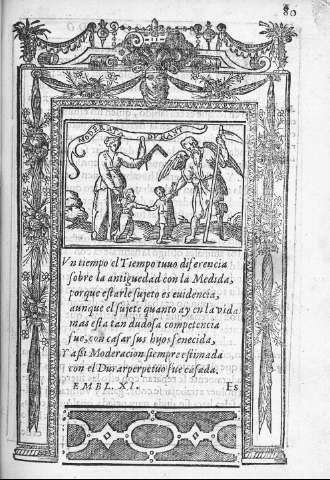 80
MODERATA DVRANT
Vn tiempo el Tiempo tuuo diferencia
ſobre la antiguedad con la Medida,
porque eſtarle ſujeto es euidencia,
aunque el ſujete quanto ay en la vida
mas eſta tan dudoſa competencia
fue, con caſar ſus hijos fenecida,
Y aßi Moderacion ſiempre eſtimada
con el Durar perpetuo fue caſada.
EMBL. XI. Es